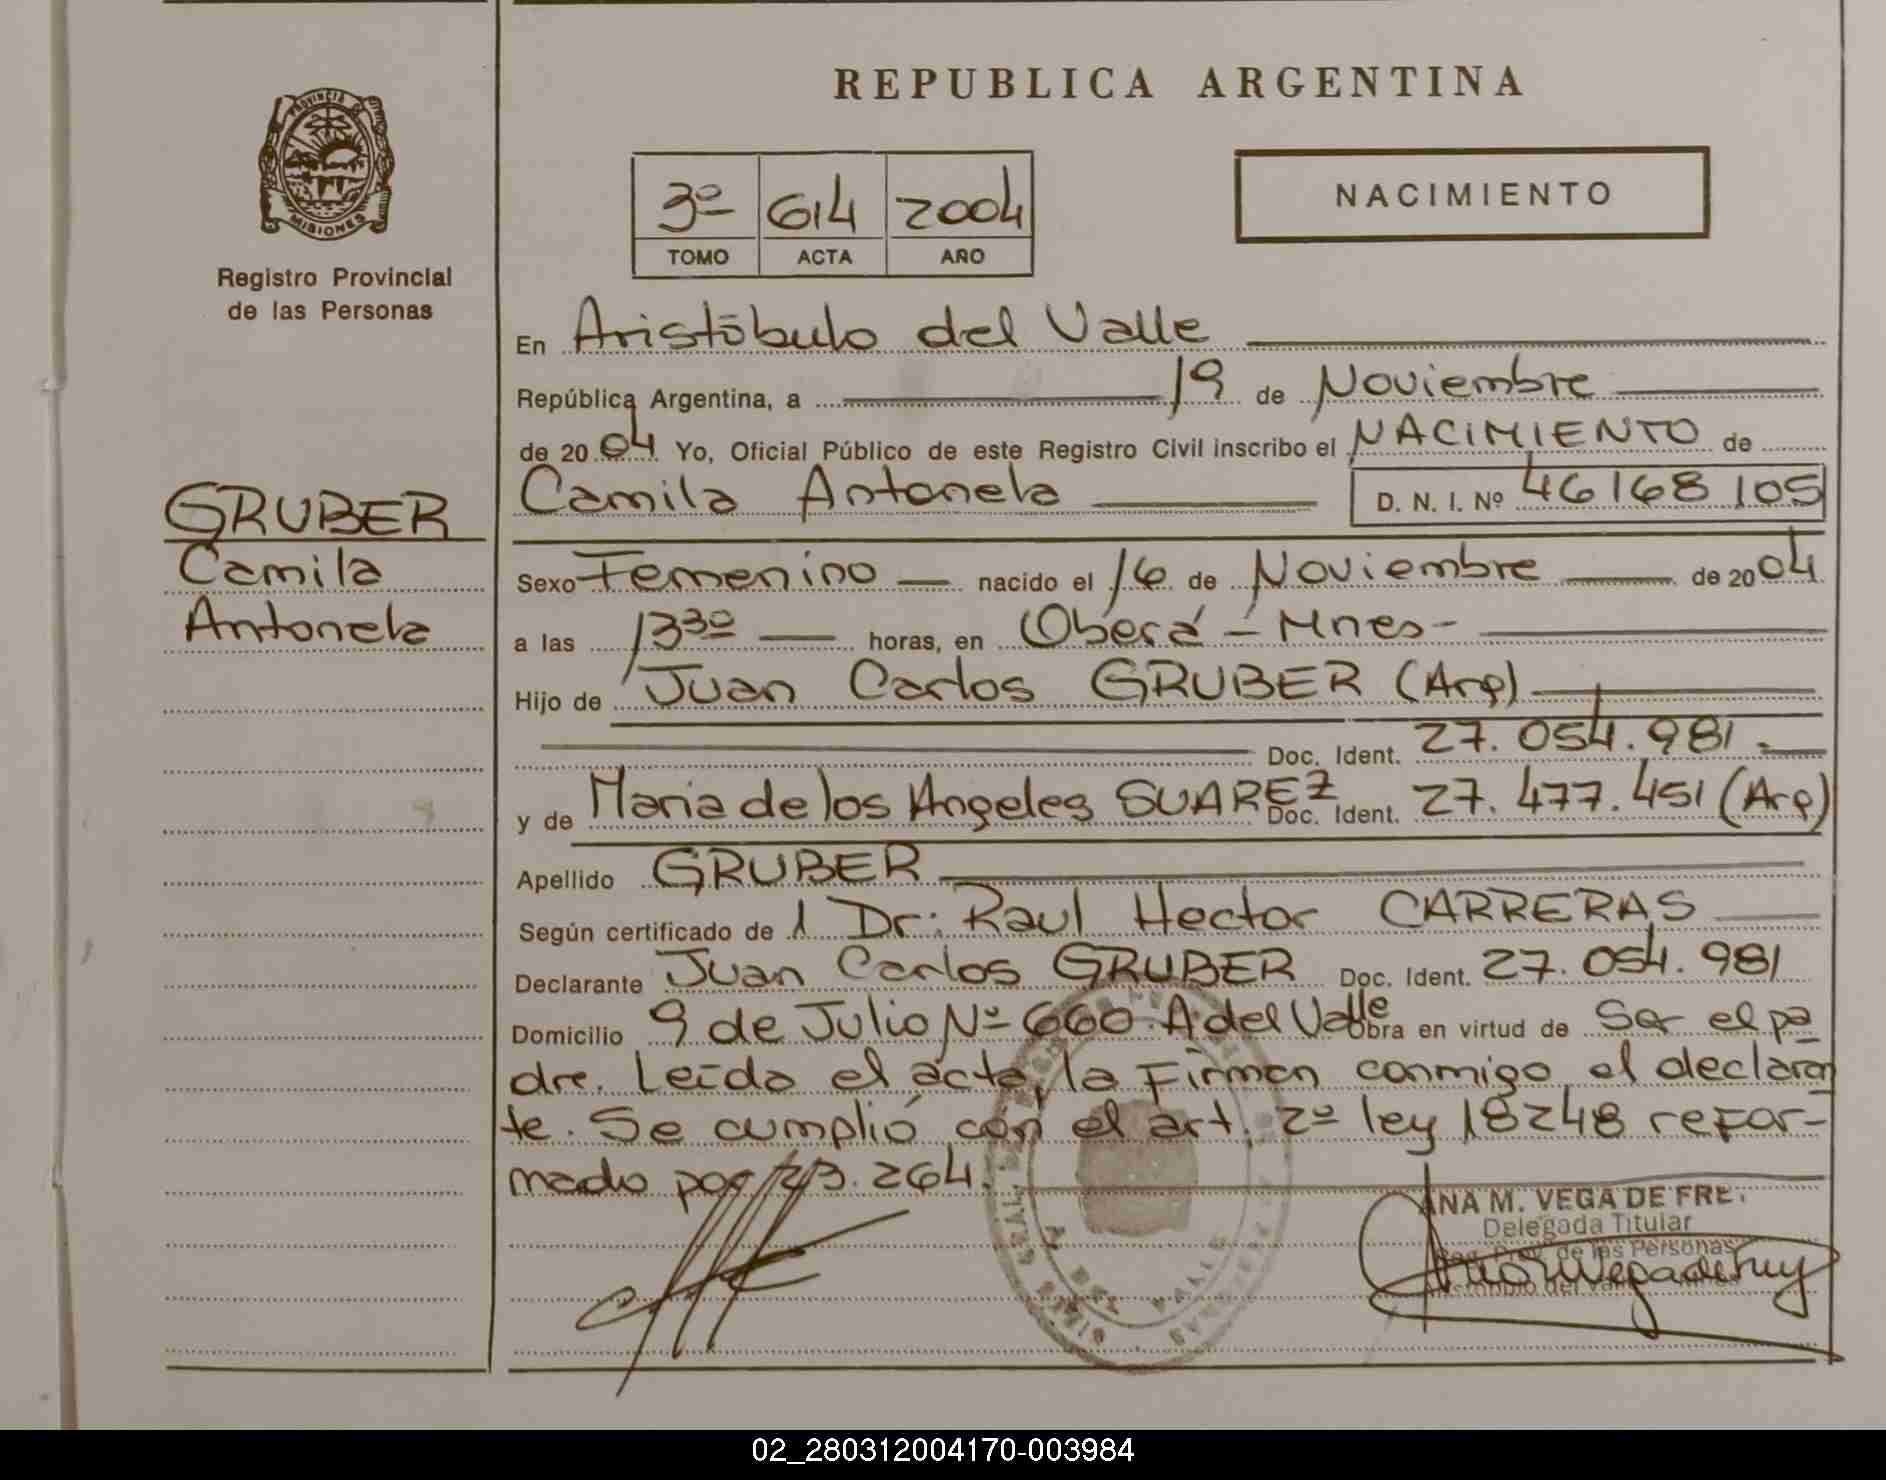 REPUBLICA ARGENTINA
PROVINCIA DE
MISIONES
Registro Provincial
de las Personas
3º 614 2004
TOMO ACTA AÑO
NACIMIENTO
En Aristóbulo del Valle
República Argentina, a 19 de Noviembre
de 2004 Yo, Oficial Público de este Registro Civil inscribo el NACIMIENTO de
Camila Antonela D. N. I. Nº 46168105
GRUBER
Camila
Antonela
Sexo Femenino nacido el 16 de Noviembre de 2004
a las 13 30 horas, en Oberá - Mnes-
Hijo de Juan Carlos GRUBER (Arg)
Doc. Ident. 27.054.981.
y de Maria de los Angeles SUAREZ Doc. Ident. 27.477.451 (Arg)
Apellido GRUBER
Según certificado de 1 Dr: Raul Hector CARRERAS
Declarante Juan Carlos GRUBER Doc. Ident. 27.054.981
Domicilio 9 de Julio Nº 660. A del Valle Obra en virtud de Ser el pa
dre. Leída el acta, la Firman conmigo, el declaran
te. Se cumplió con el art. 2º ley 18248 refor-
mado por 23.264.
ANA M. VEGA DE FRE
Delegada Titular
Reg. Prov. de las Personas
02_280312004170-003984